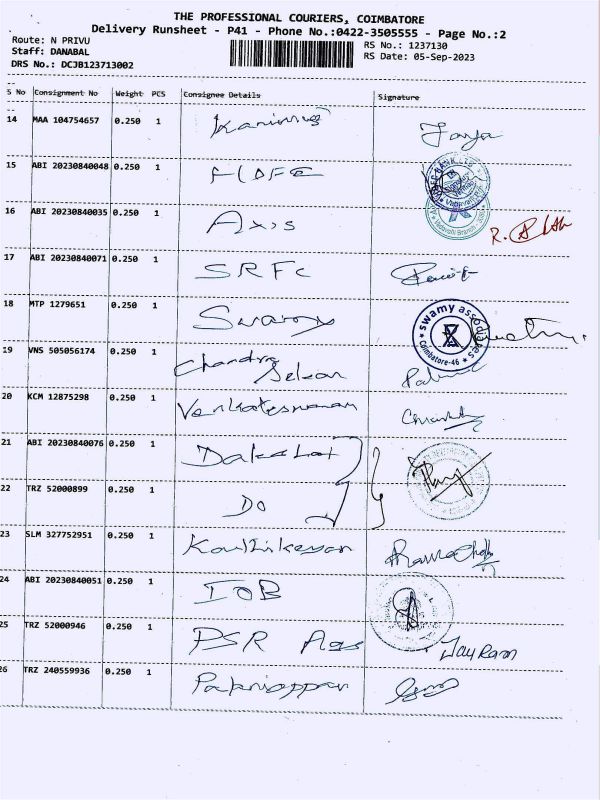 THE PROFESSIONAL COURIERS, COIMBATORE
Delivery Runsheet - P41 - Phone No.:0422-3505555 - Page No.:2
Route: N PRIVU RS No.: 1237130
Staff: DANABAL RS Date: 05-Sep-2023
DRS No.: DCJB123713002
S No Consignment No Weight PCS Consignee Details Signature
14 MAA 104754657 0.250 1
15 ABI 20230840048 0.250 1 HDFC
16 ABI 20230840035 0.250 1 Axis
17 ABI 20230840071 0.250 1 SRFC
18 MTP 1279651 0.250 1 Swamy swamy associates Coimbatore-46
19 VNS 505056174 0.250 1 Chandra
Sekar
20 KCM 12875298 0.250 1
21 ABI 20230840076 0.250 1
22 TRZ 52000899 0.250 1 DO
23 SLM 327752951 0.250 1
24 ABI 20230840051 0.250 1 IOB
25 TRZ 52000946 0.250 1 PSR Jayram
26 TRZ 240559936 0.250 1 Palaniappan